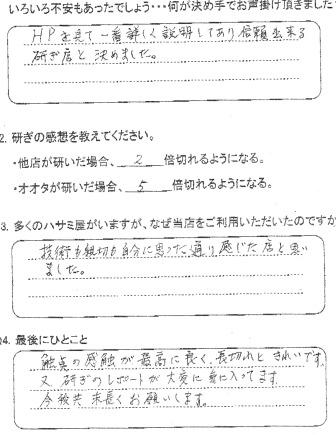 いろいろ不安もあったでしょう・・・何が決め手でお声掛け頂きました
HPを見て一番詳しく説明してあり信頼出来る
研ぎ店と決めました。
2. 研ぎの感想を教えてください。
・他店が研いだ場合、 2 倍切れるようになる。
・オオタが研いだ場合、 5 倍切れるようになる。
3. 多くのハサミ屋がいますが、なぜ当店をご利用いただいたのですか
技術も親切も自分に思った通り感じた店と思い
ました。
4. 最後にひとこと
触点の感触が最高に良く、長切れと きれいです。
又 研ぎのレポートが大変に気に入ってます。
今後共 末長くお願いします。